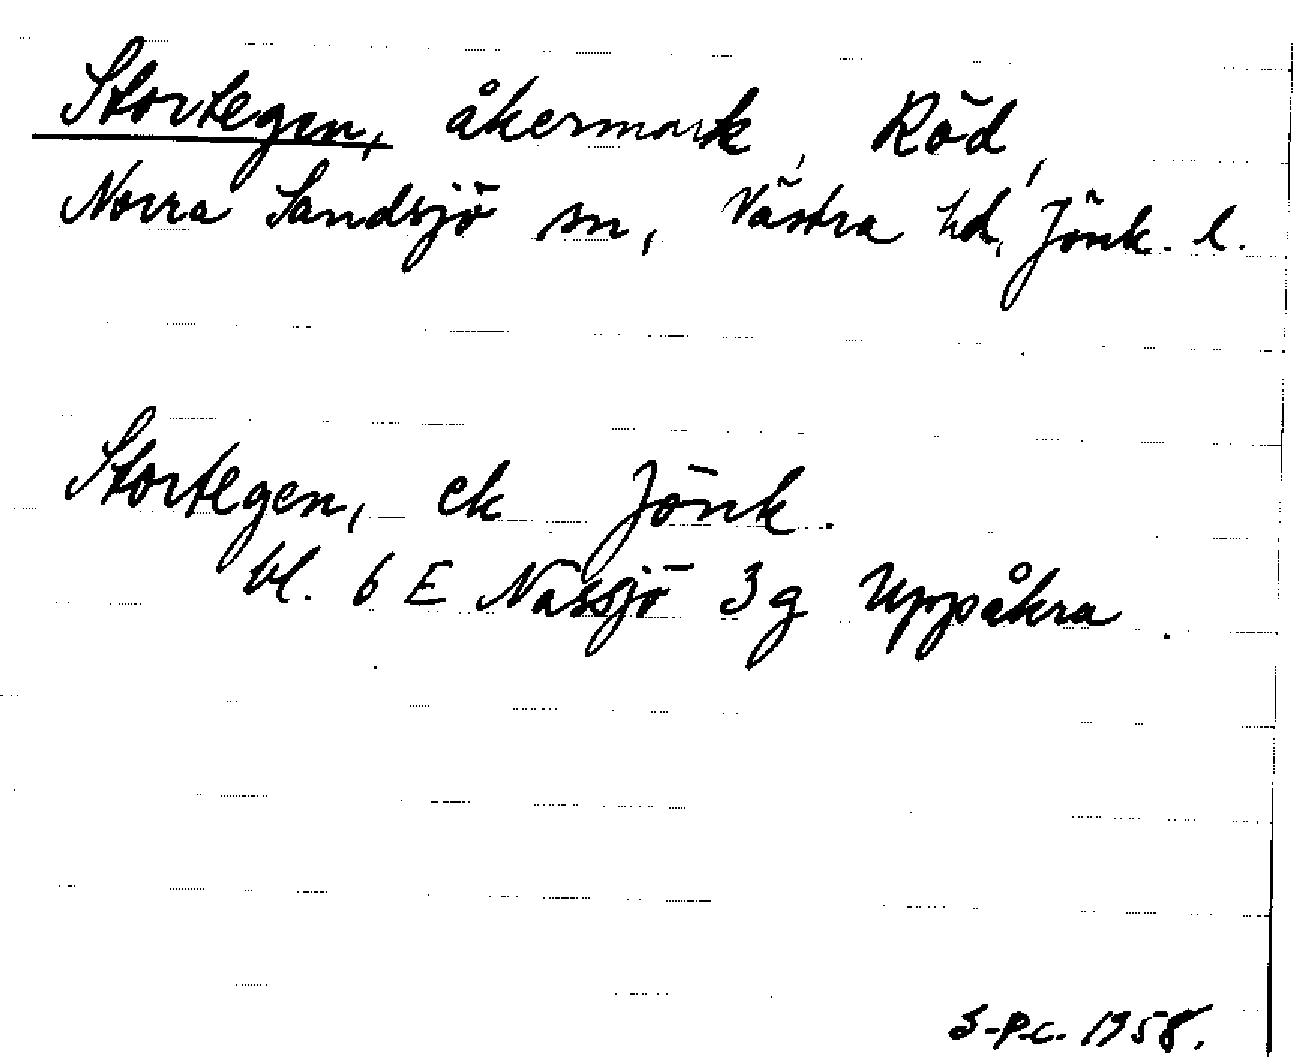 Stortegen, åkermark, Röd,
Norra Sandsjö sn, Västra hd, Jönk. l.
Stortegen, ek Jönk.
bl. 6 E Nässjö 3 g Uppåkra.
S-P.C. 1958.